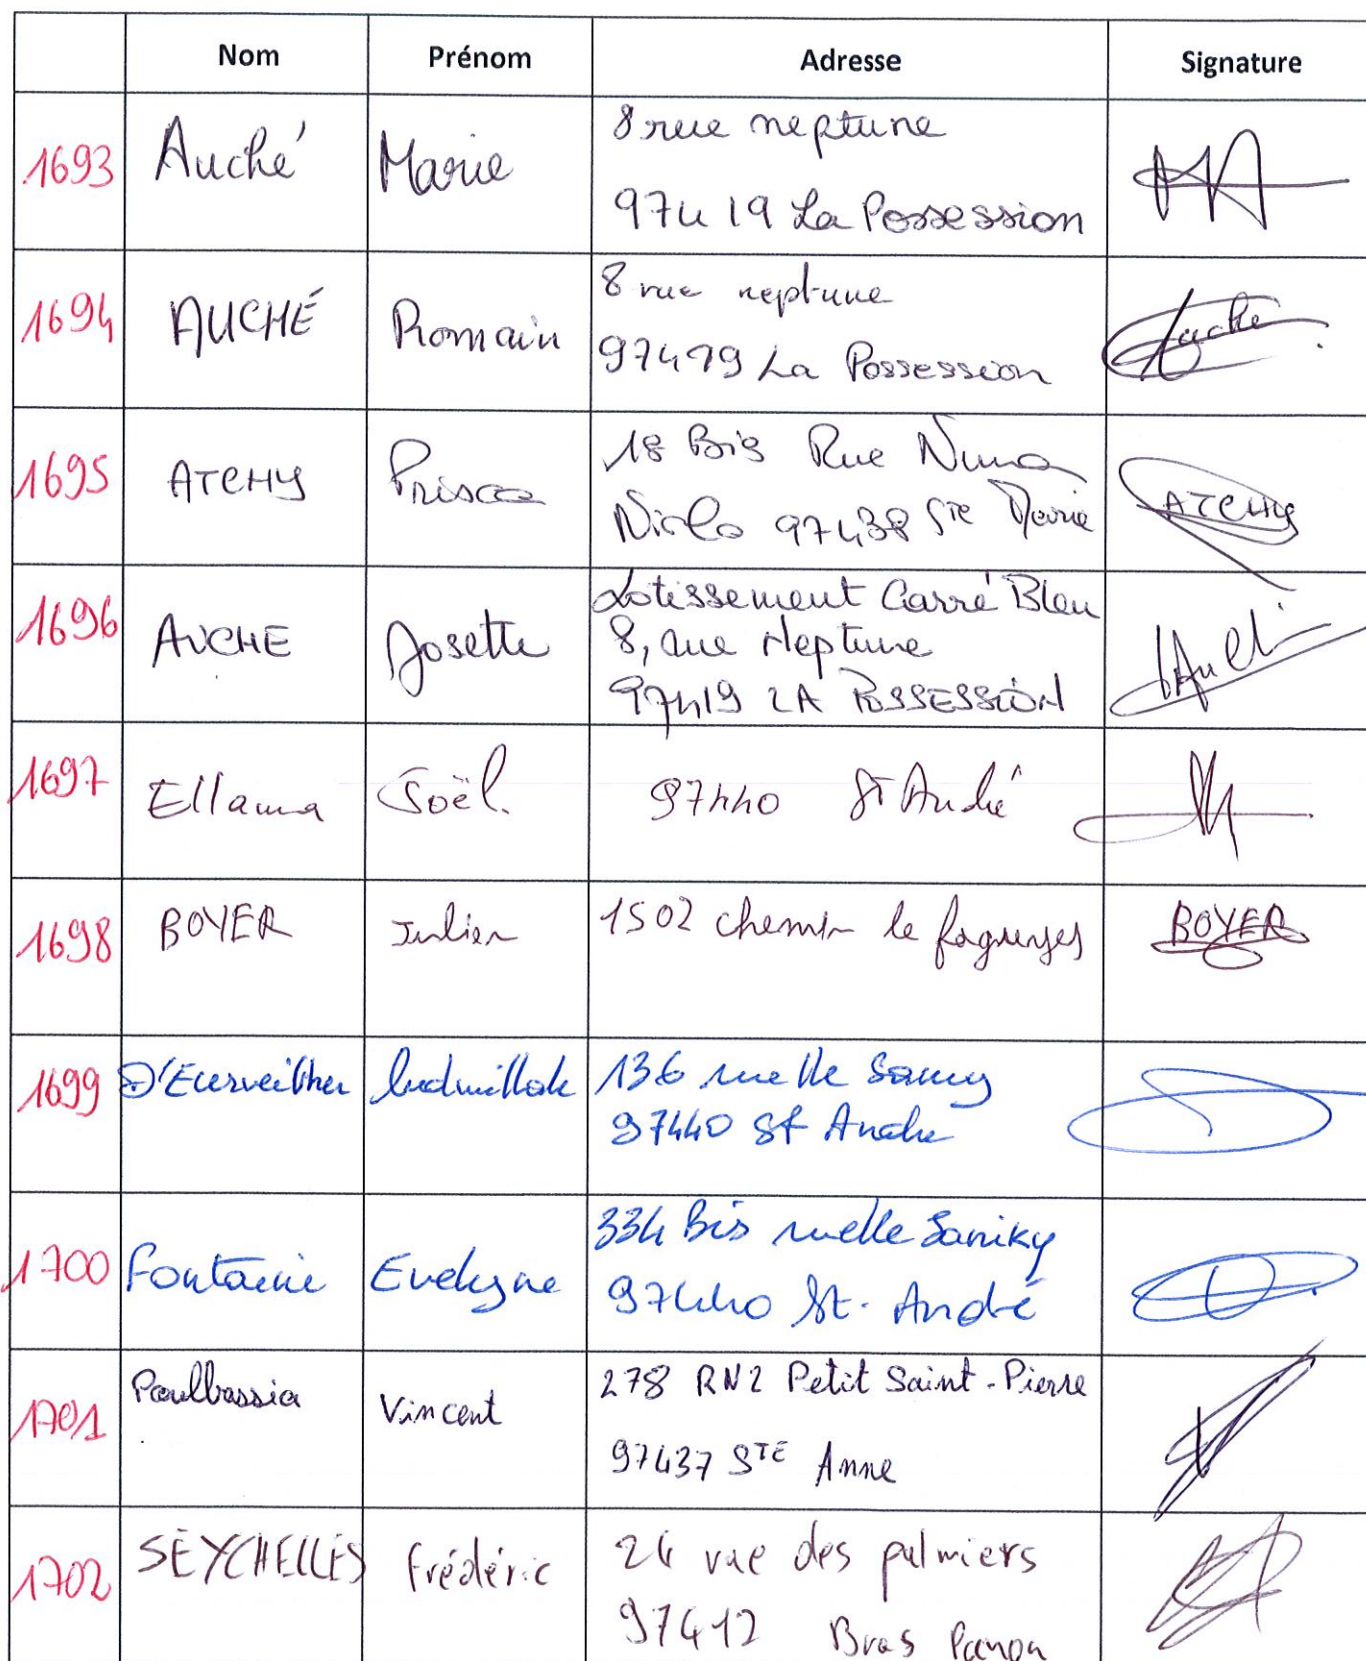 Nom Prénom Adresse Signature
1693 Auché Marie 8 rue neptune
97419 La Possession
1694 AUCHÉ Romain 8 rue neptune
97419 La Possession
Auché
1695 ATCHY Prisca 18 Bis Rue Numa
Niclo 97438 STE Marie
ATCHY
1696 AUCHE Josette Lotissement Carré Bleu
8, rue Neptune
97419 LA POSSESSION
1697 Ellama Joël. 97440 St André
1698 BOYER Julien 1502 chemin le
BOYER
1699 136 ruelle Samy
97440 St Andre
1700 Fontaine Evelyne 334 Bis ruelle Saniky
97440 St. André
1701 Paulbassia Vincent 278 RN2 Petit Saint-Pierre
97437 STE Anne
1702 SEYCHELLES Frédéric 24 rue des palmiers
97412 Bras Panon